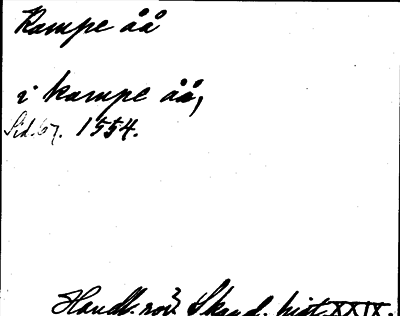 Kampe åå
i kampe åå,
Sid. 67. 1554.
Handl. rör Skand. hist XXIX.